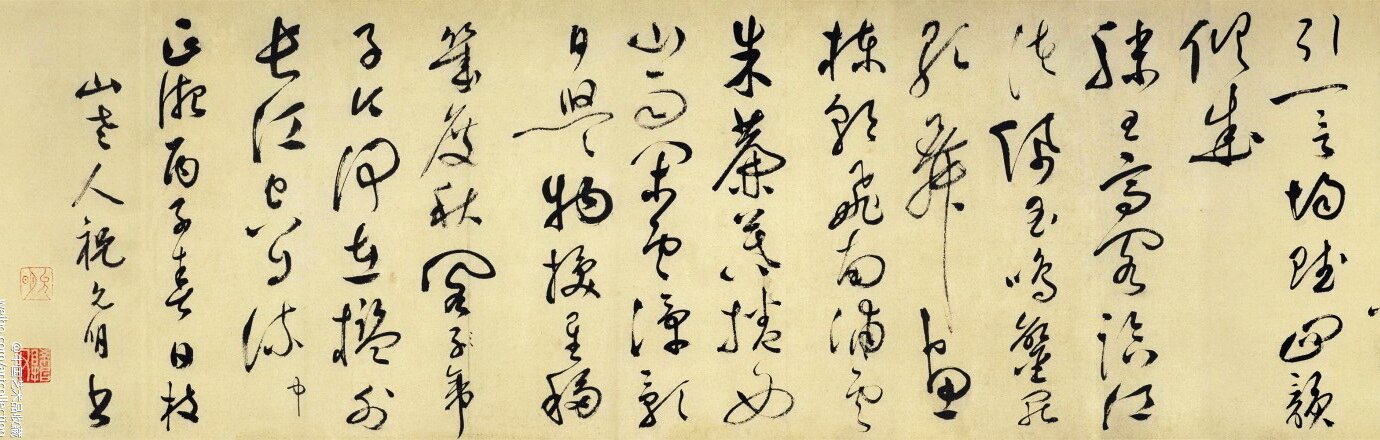 引一言均賦四韻
俱成
滕王高閣臨江
渚佩玉鳴鑾罷
歌舞畫
棟朝飛南浦雲
朱簾暮捲西
山雨閑雲潭影
日悠悠物換星移
幾度秋閣帝
子今何在檻外
長江空自流中
正德丙子春日枝
山老人祝允明書
@中国艺术品收藏